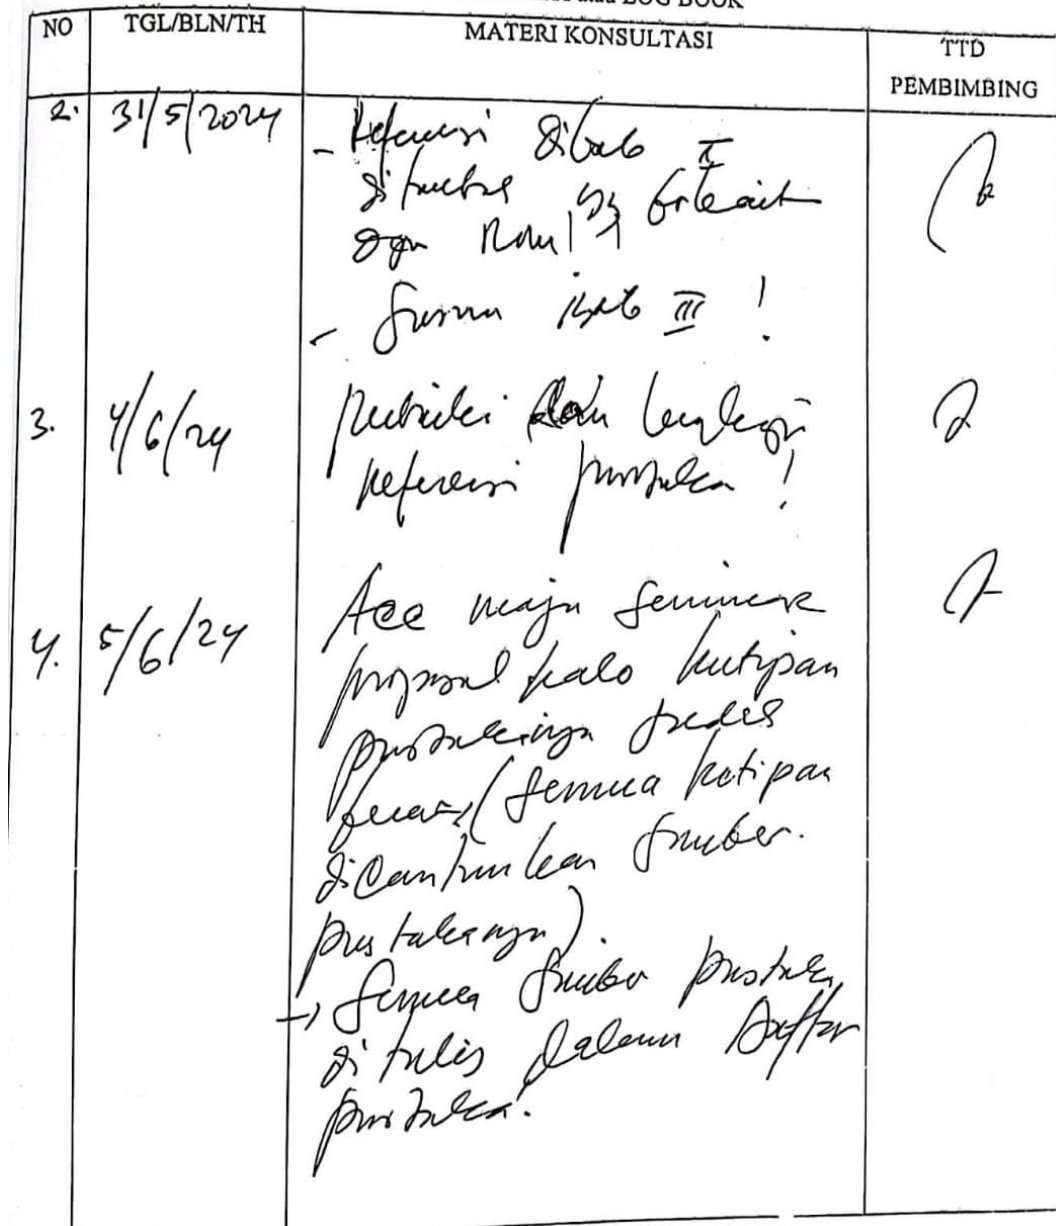 LOG BOOK
NO TGL/BLN/TH MATERI KONSULTASI TTD
PEMBIMBING
2. 31/5/2024 - Referensi dibab II
yg terkait
dgn
- Susun Bab III !
3. 4/6/24 perbaiki dan lengkapi
referensi pustaka !
4. 5/6/24 Acc maju seminar
proposal kalo kutipan
pustakanya
(semua kutipan
dicantumkan sumber
pustakanya)
→ Semua sumber pustaka
ditulis dalam Daftar
pustaka.